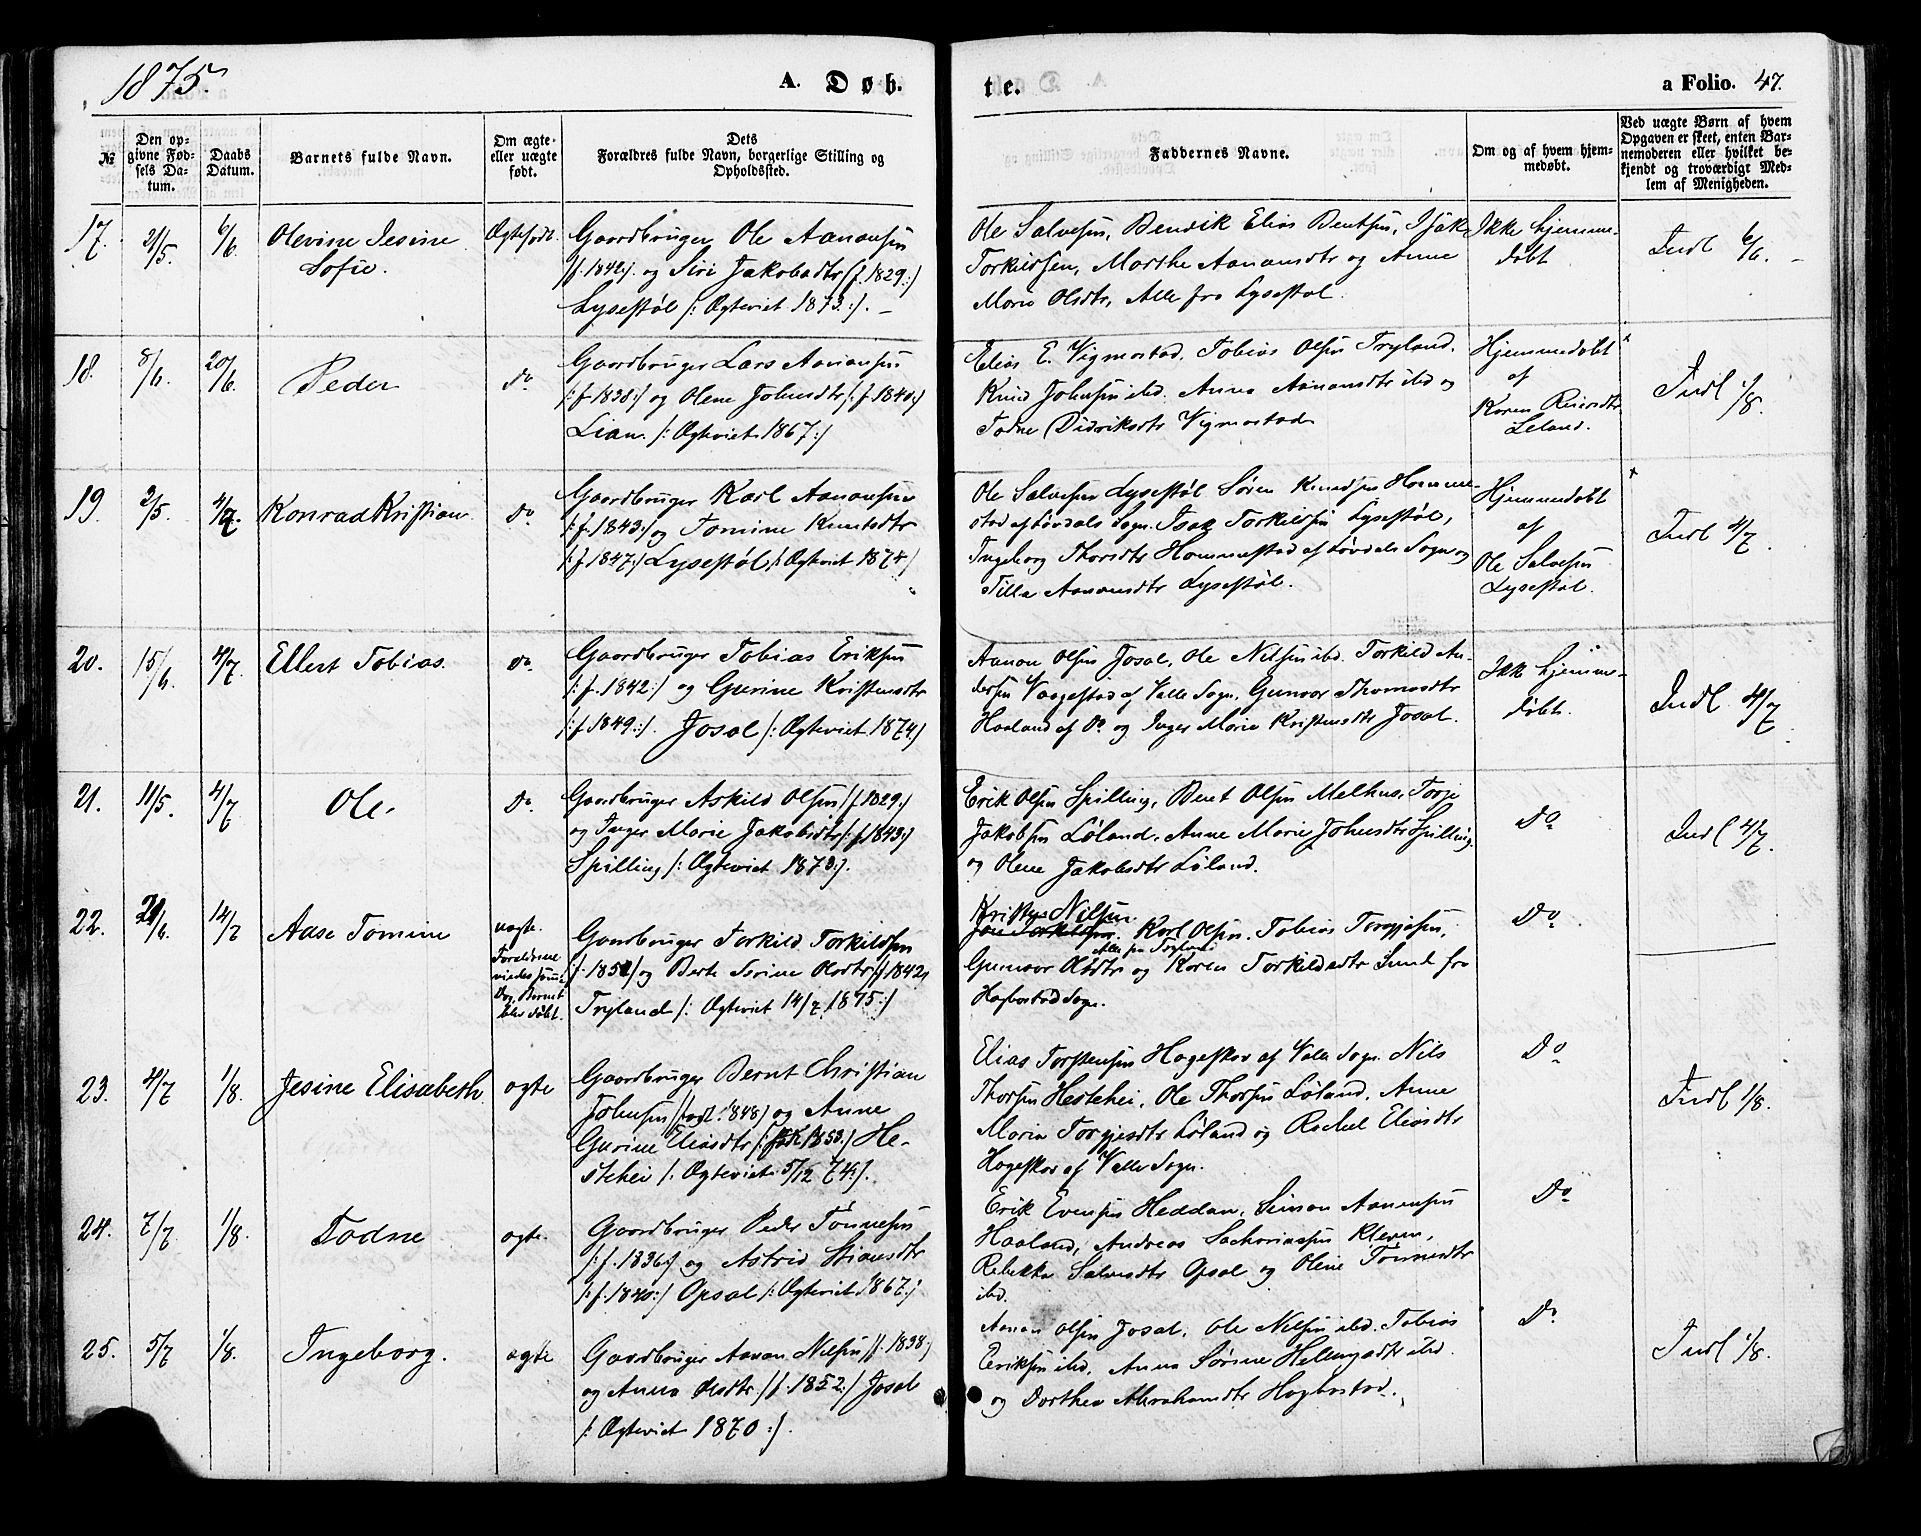 1875.
A. Døb-
te.
a Folio. 47.
№
Den opgivne Fødsels Datum.
Daabs Datum.
Barnets fulde Navn.
Om ægte eller uægte født.
Dets Forældres fulde Navn, borgerlige Stilling og Opholdssted.
Faddernes Navne.
Om og af hvem hjemmedøbt.
Ved uægte Børn af hvem Opgaven er skeet, enten Barnemoderen eller hvilket bekjendt og troværdigt Medlem af Menigheden.
17. 21/5. 6/6 Olevine Jesine Sofie. Ægtefødt.
Gaardbruger Ole Aanensen
/f. 1842/. og Siri Jakobsdtr (f. 1829:)
Lysestøl /: Ægteviet 1873:/. –
Ole Salvesen, Bendik Elias Bentsen, Isak
Torkildsen, Marthe Aanensdtr og Anne
Marie Olsdtr, Alle fra Lysestøl.
Ikke hjemmedøbt
Indl 6/6.
18. 8/6. 20/6. Peder do
Gaardbruger Lars Aanensen
/:f 1838:/ og Olene Johnsdtr /:f. 1840:/
Lian. /: Ægteviet 1867:/
Elias E. Vigmostad. Tobias Olsen Tryland.
Knud Johnsen ibd. Anna Aanensdtr ibd og
Todne Didriksdtr Vigmostad
Hjemmedøbt
af
Karen Reiersdtr
Leland.
Indl 1/8.
19. 2/5. 4/7. Konrad Kristian do
Gaardbruger Karl Aanensen
/:f. 1843:/ og Tomine Knudsdtr
/:f. 1847:/ Lysestøl /: Ægteviet 1874/
Ole Salvesen Lysestøl. Søren Knudsen Homme-
stad af Løvdals Sogn. Isak Torkildsen Lysestøl,
Ingeborg Thorsdtr Hommestad af Løvdals Sogn og
Tilla Aanensdtr Lysestøl.
Hjemmedøbt
af
Ole Salvesen
Lysestøl.
Indl 4/7.
20. 15/6. 4/7. Ellert Tobias. do
Gaardbruger Tobias Eriksen
/:f. 1842:/ og Gurine Kristensdtr
/:f 1849:/. Josal /: Ægteviet 1874/
Aanon Olsen Josal, Ole Nilsen ibd. Torkild An-
dersen Vaagestad af Valle Sogn, Gunvor Thomasdtr
Haaland af Do og Inger Marie Kristensdtr Josal.
Ikk hjemme-
døbt.
Indl 4/7
21. 11/5. 4/7. Ole. do
Gaardbruger Askild Olsen /f. 1829:/
og Inger Marie Jakobsdtr /:f 1843:/
Spilling /: Ægteviet 1873:/.
Erik Olsen Spilling, Bent Olsen Melhus. Torje
Jakobsen Løland. Anne Marie Johnsdtr Spilling,
og Olene Jakobsdtr Løland.
Do
Indl 4/7.
22. 21/6. 14/7 Aase Tomine uægte.
Forældrene
viedes samme
Dag Barnet
blev døbt.
Gaardbruger Torkild Torkildsen
/f. 1851/ og Berte Serine Olsdtr /f 1842,
Tryland /: Ægteviet 14/7 1875:/
Kristen Nilsen
Jon Torkildsen. Karl Olsen. Tobias Torgjesen,
Alle fra Tryland
Gunvor Olsdtr og Karen Torkildsdtr Sund fra
Hægbostad Sogn.
Do
23. 4/7 1/8. Jesine Elisabeth. ægte
Gaardbruger Bernt Christian
Johnsen /født. 1848/ og Anne
Gurine Eliasdtr /: født 1853:/ He-
stehei /: Ægteviet 5/12 74:/.
Elias Torstensen Hageskov af Valle Sogn. Nils
Thorsen Hestehei, Ole Thorsen Løland, Anne
Marie Torgjesdtr Løland og Rachel Eliasdtr
Hageskov af Valle Sogn.
Do
Indl 1/8.
24. 7/7 1/8. Todne ægte.
Gaardbruger Peder Tønnesen
/:f. 1836:/ og Astrid Stiansdtr
/:f. 1840:/ Opsal /: Ægteviet 1867:/
Erik Evensen Heddan, Simon Aanensen
Haaland, Andreas Sachariasen Kleven,
Rebekka Salvesdtr Opsal og Olene Tønnesdtr
ibd.
Do
25. 5/7 1/8. Ingeborg. ægte
Gaardbruger Aanon Nilsen /f. 1838:/
og Anna Olsdtr /f. 1852:/ Josal
/: Ægteviet 1870:/.
Aanon Olsen Josal, Ole Nilsen ibd. Tobias
Eriksen ibd, Anna Sørine Hellengsdtr ibd.
og Dorthea Abrahamsdtr Hægbostad.
Do
Indl 1/8.